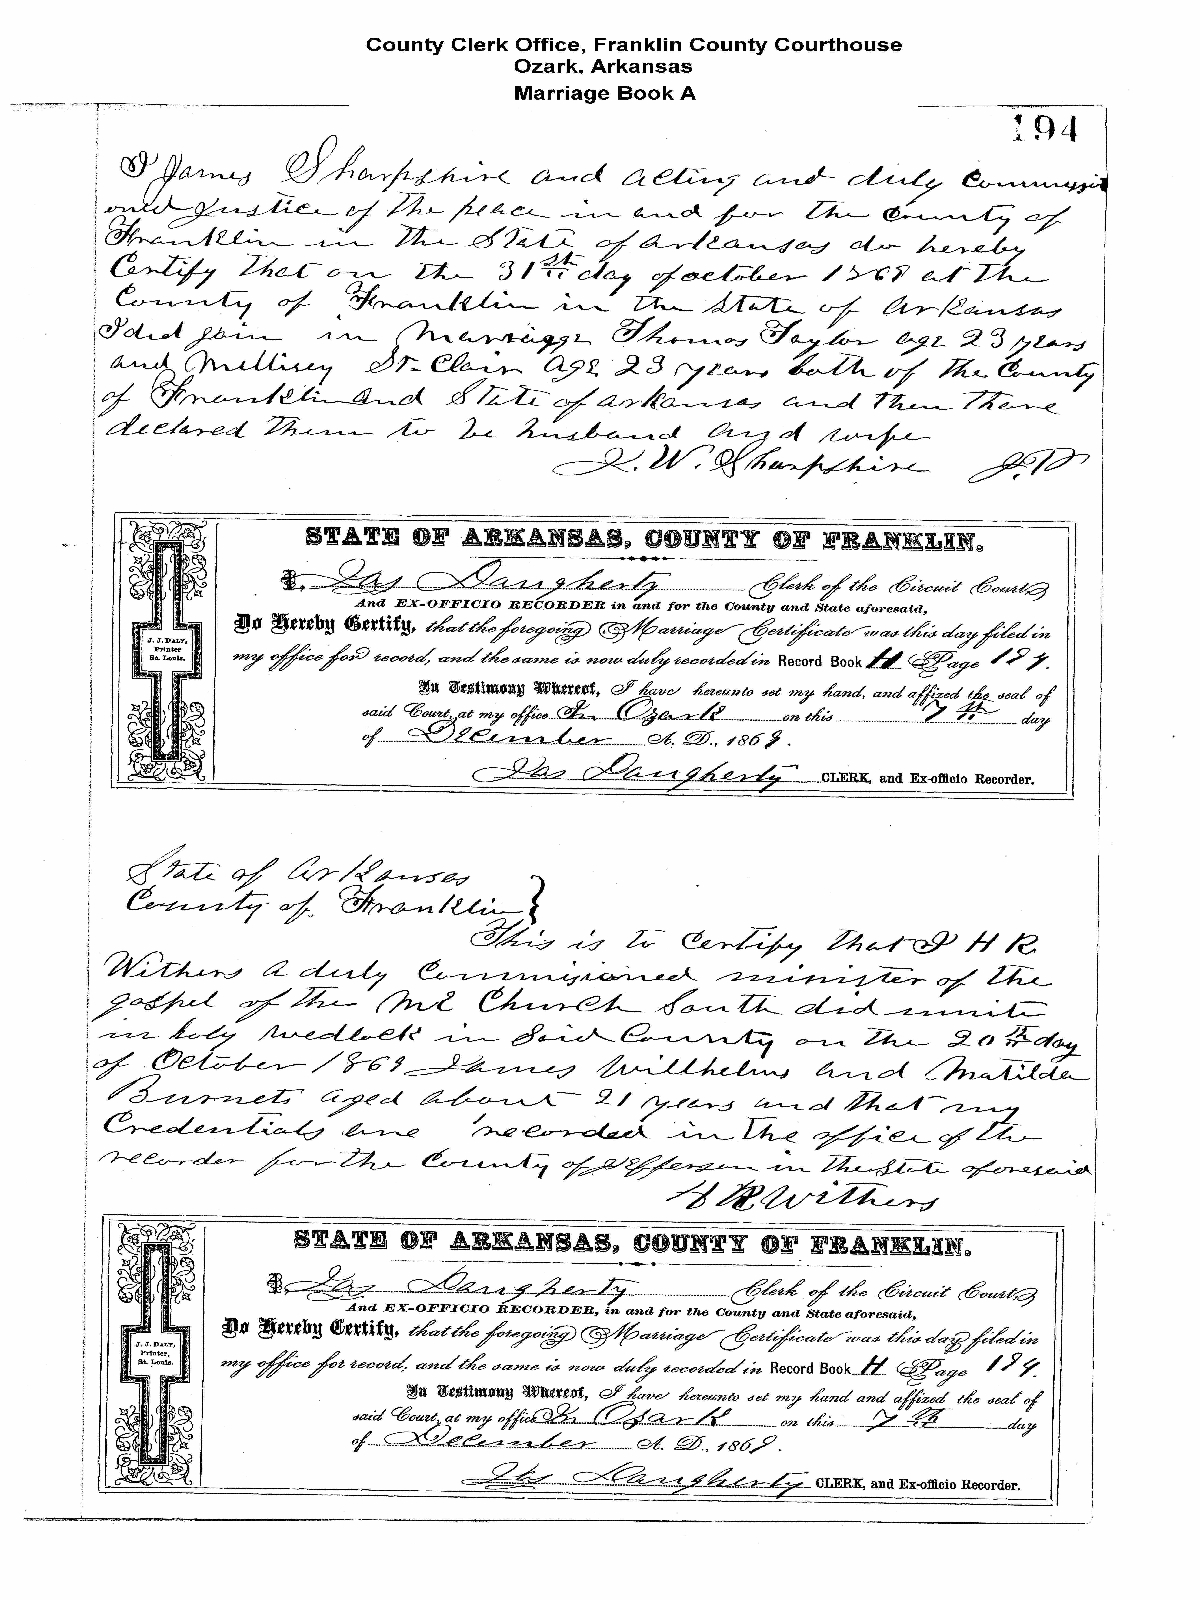 County Clerk Office, Franklin County Courthouse
Ozark, Arkansas
Marriage Book A
194
I James Sharpshire and acting and duly Commissi
oned Justice of the peace in and for the County of
Franklin in the State of Arkansas do hereby
Certify that on the 31st day of october 1869 at the
County of Franklin in the State of Arkansas
I did join in Marriage Thomas Taylor age 23 years
and Mellisey St. Clair age 23 years both of the County
of Franklin and State of arkansas and then there
declared them to be husband and wife
J. W. Sharpshire J.P
STATE OF ARKANSAS, COUNTY OF FRANKLIN.
I, Jas Daugherty Clerk of the Circuit Court
And EX-OFFICIO RECORDER in and for the County and State aforesaid,
Do Hereby Certify, that the foregoing Marriage Certificate was this day filed in
my office for record, and the same is now duly recorded in Record Book H Page 194.
In Testimony Whereof, I have hereunto set my hand, and affixed the seal of
said Court, at my office In Ozark on this 7th day
of December A. D., 1869.
Jas Daugherty CLERK, and Ex-officio Recorder.
J. J. DALY,
Printer
St. Louis.
State of Arkansas
County of Franklin }
This is to Certify that I H R
Withers a duly Commissioned minister of the
gospel of the ME Church South did unite
in holy wedlock in Said County on the 20th day
of October 1869 James Willhelms and Matilda
Burnets aged about 21 years and that my
Credentials are recorded in the office of the
recorder for the County of Jefferson in the State aforesaid
H R Withers
STATE OF ARKANSAS, COUNTY OF FRANKLIN.
I, Jas Daugherty Clerk of the Circuit Court
And EX-OFFICIO RECORDER, in and for the County and State aforesaid,
Do Hereby Certify, that the foregoing Marriage Certificate was this day filed in
my office for record, and the same is now duly recorded in Record Book H Page 194.
In Testimony Whereof, I have hereunto set my hand and affixed the seal of
said Court, at my office In Ozark on this 7th day
of December A. D., 1869.
Jas Daugherty CLERK, and Ex-officio Recorder.
J. J. DALY,
Printer,
St. Louis.